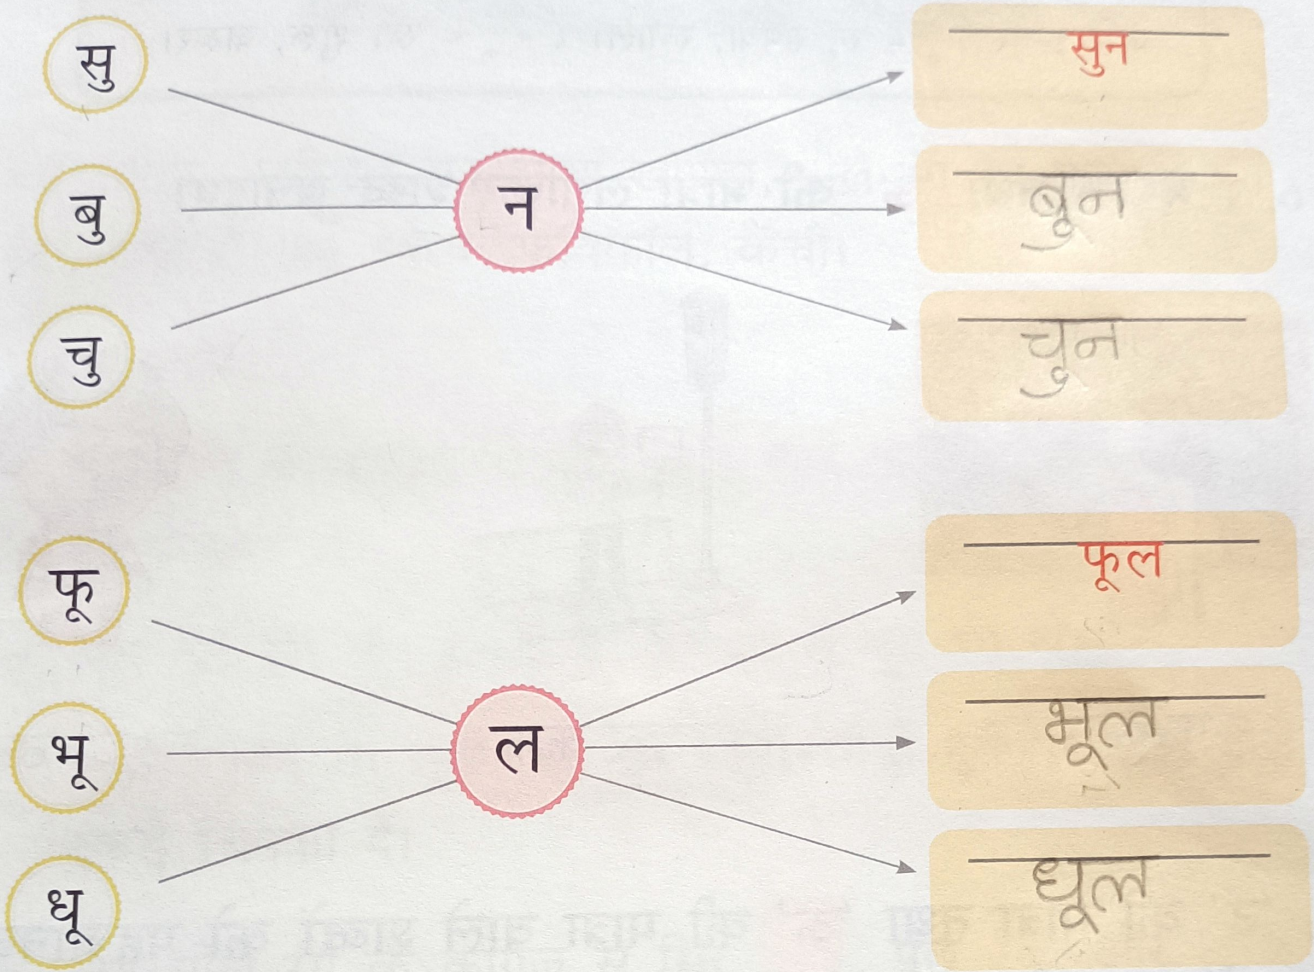 सु
बु
चु
न
सुन
बुन
चुन
फू
भू
धू
ल
फूल
भूल
धूल